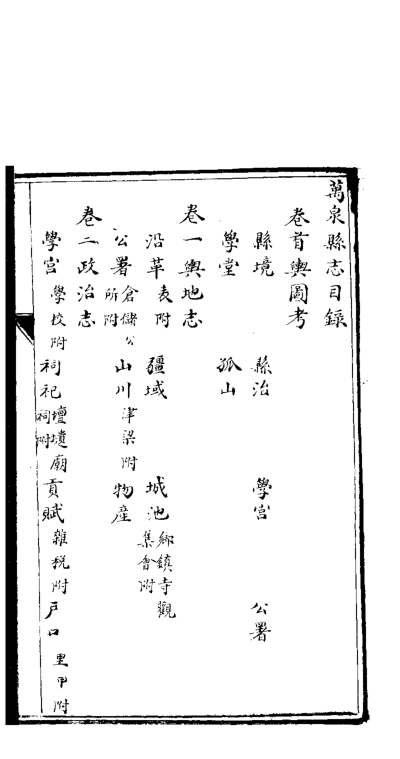 萬泉縣志目錄
卷首輿圖考
縣境 縣治 學宮 公署
學堂 孤山
卷一輿地志
沿革表附 疆域 城池鄉鎮寺觀集會附
公署倉儲公所附 山川津梁附 物產
卷二政治志
學宮學校附 祠祀壇壝廟祠附 貢賦雜稅附 戶口里甲附